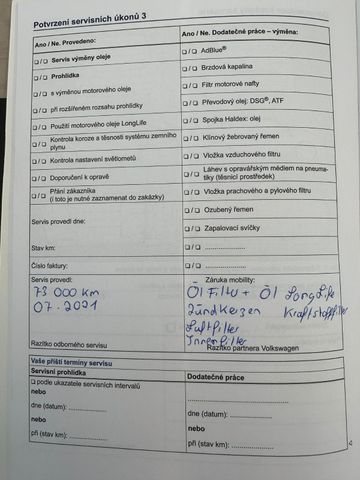 Potvrzení servisních úkonů 3
Ano / Ne. Provedeno:
❑ / ❑ Servis výměny oleje
❑ / ❑ Prohlídka
❑ / ❑ s výměnou motorového oleje
❑ / ❑ při rozšířeném rozsahu prohlídky
❑ / ❑ Použití motorového oleje LongLife
❑ / ❑ Kontrola koroze a těsnosti systému zemního
plynu
❑ / ❑ Kontrola nastavení světlometů
❑ / ❑ Doporučení k opravě
❑ / ❑ Přání zákazníka
(i toto je nutné zaznamenat do zakázky)
Servis provedl dne:
Stav km:
Číslo faktury:
Ano / Ne. Dodatečné práce – výměna:
❑ / ❑ AdBlue®
❑ / ❑ Brzdová kapalina
❑ / ❑ Filtr motorové nafty
❑ / ❑ Převodový olej: DSG®, ATF
❑ / ❑ Spojka Haldex: olej
❑ / ❑ Klínový žebrovaný řemen
❑ / ❑ Vložka vzduchového filtru
❑ / ❑ Láhev s opravářským médiem na pneuma-
tiky (těsnicí prostředek)
❑ / ❑ Vložka prachového a pylového filtru
❑ / ❑ Ozubený řemen
❑ / ❑ Zapalovací svíčky
❑ / ❑ ....................
❑ / ❑ ....................
Servis provedl:
73 000 Km
07.2021
Razítko odborného servisu
Záruka mobility:
Öl Filter + Öl LongLife
Zündkerzen Kraftstofffilter
Luftfilter
Innenfilter
Razítko partnera Volkswagen
Vaše příští termíny servisu
Servisní prohlídka
❑ podle ukazatele servisních intervalů
nebo
dne (datum): ....................
nebo
při (stav km): ....................
Dodatečné práce
....................
dne (datum): ....................
nebo
při (stav km): ....................